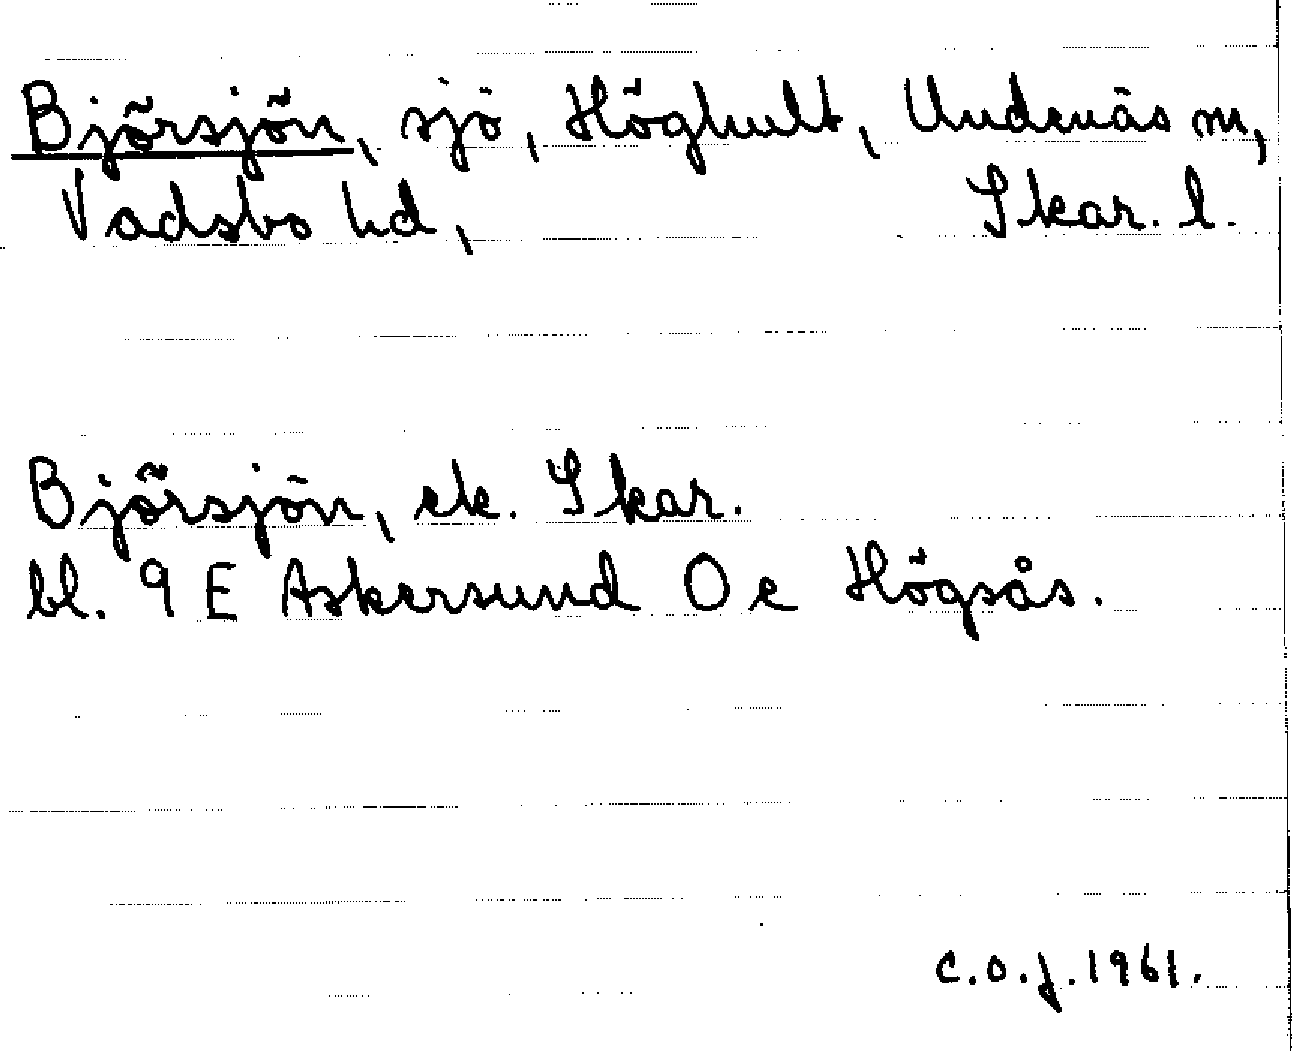 Björsjön, sjö, Höghult, Undenäs sn,
Vadsbo hd, Skar. l.
Björsjön, ek. Skar.
bl. 9 E Askersund 0 c Högsås.
C.O.J. 1961.